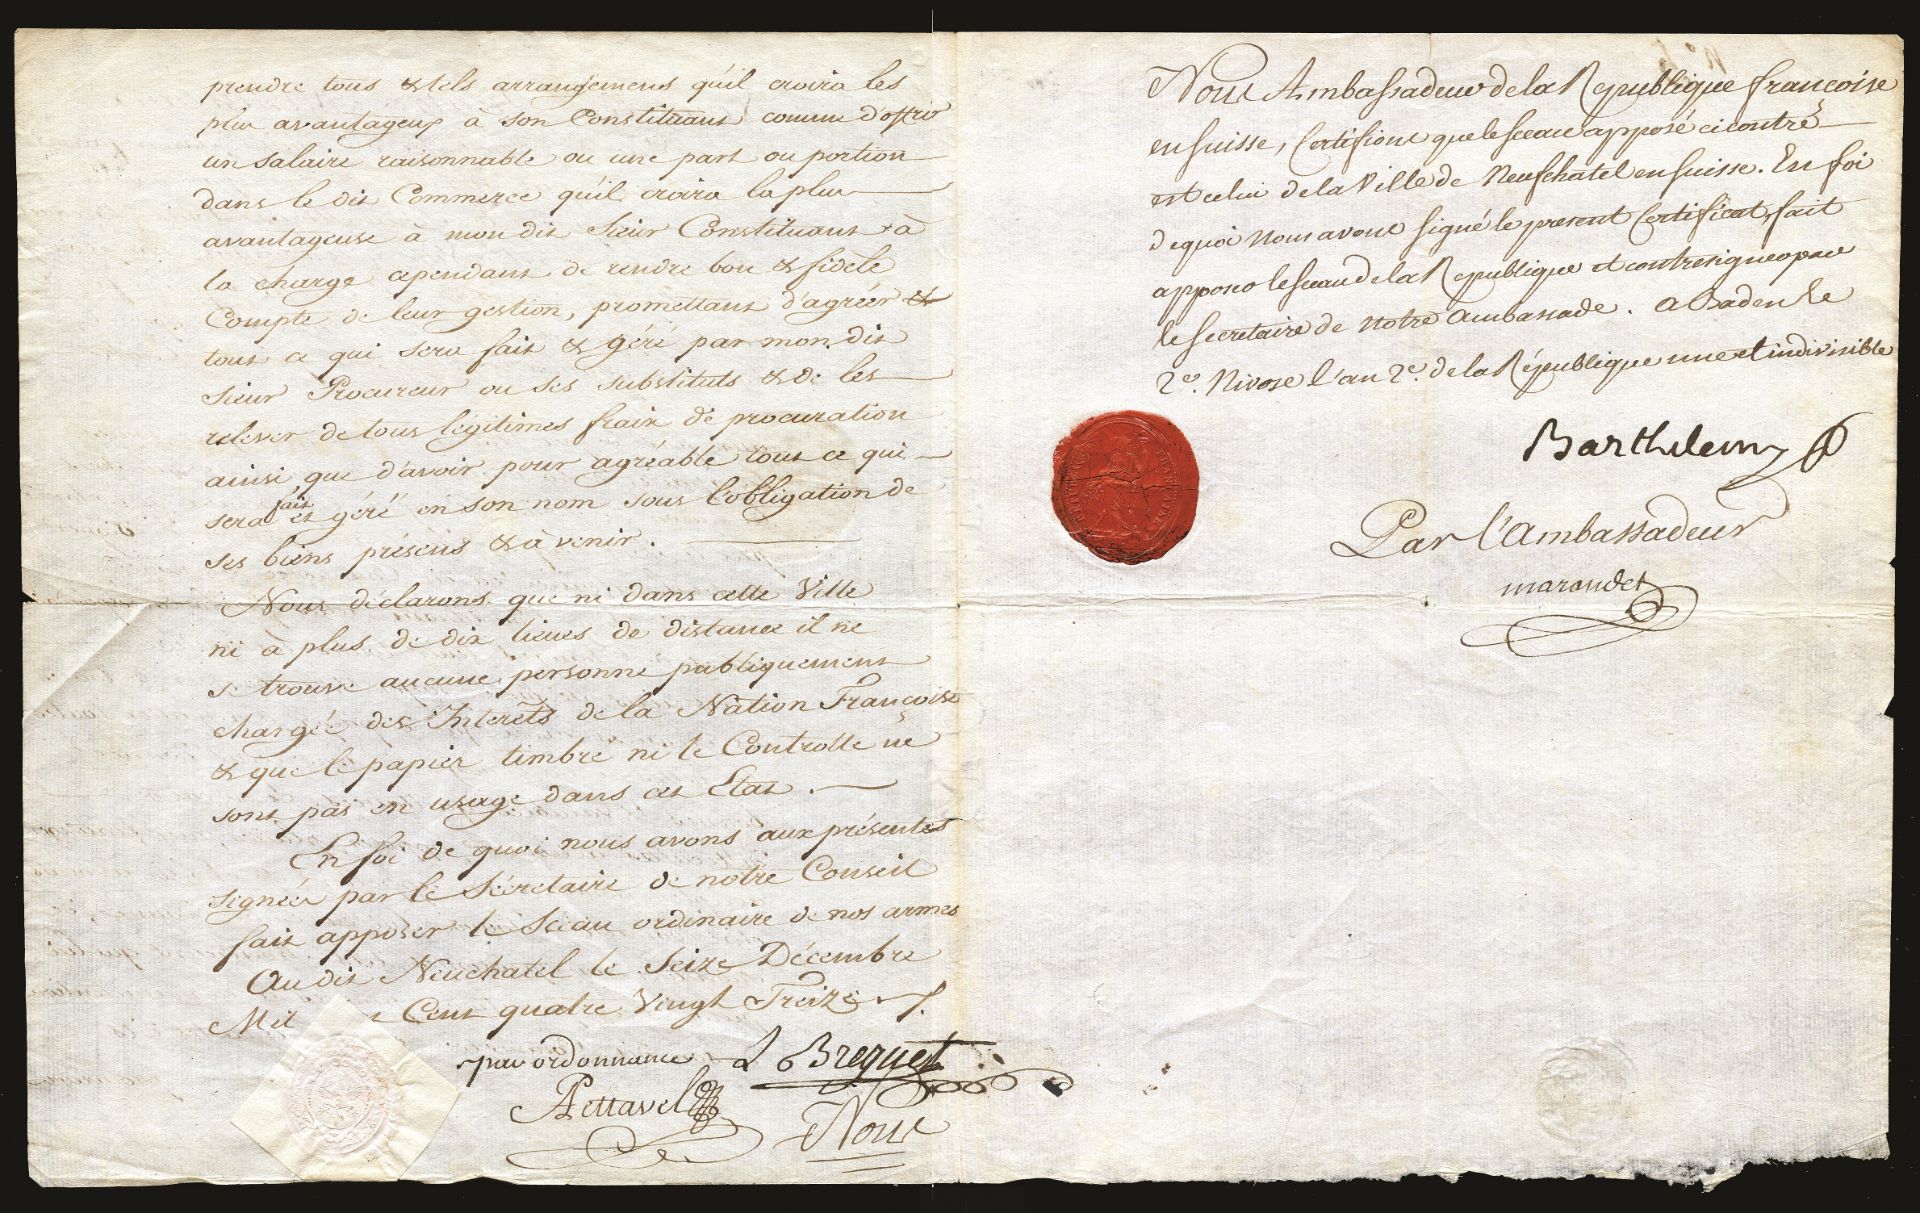 prendre tous & tels arrangemens qu'il croira les
plus avantageux à son Constituant comme d'offrir
un salaire raisonnable ou une part ou portion
dans le dit Commerce qu'il croira la plus
avantageuse à mon dit Sieur Constituant & à
la charge cependant de rendre bon & fidele
Compte de leur gestion, promettant d'agréer &
tout ce qui sera fait & géré par mon dit
Sieur Procureur ou ses substituts & de les
relever de tous légitimes fraix de procuration
ainsi que d'avoir pour agréable tout ce qui
sera fait et géré en son nom sous l'obligation de
ses biens présens & à venir.
Nous déclarons que ni dans cette Ville
ni à plus de dix lieues de distance il ne
se trouve aucune personne publiquement
chargée des Interêts de la Nation Françoise
& que le papier timbré ni le Controlle ne
sont pas en usage dans cet Etat.
En foi de quoi nous avons aux présentes
signées par le Sécretaire de notre Conseil
fait apposer le Sceau ordinaire de nos armes
Au dit Neuchatel le Seize Décembre
Mil Cent quatre Vingt Treize
par ordonnance L Breguet
Pettavel
Nous
Nous Ambassadeur de la Republique françoise
en Suisse, Certifions que le sceau apposé ci contre
est celui de la Ville de Neufchatel en Suisse. En foi
de quoi Nous avons signé le present Certificat, fait
apposer le sceau de la Republique et contresigner par
le secretaire de notre ambassade. a Baden le
2e. Nivose l'an 2e. de la République une et indivisible
Barthelemy
Par l'Ambassadeur
marandet